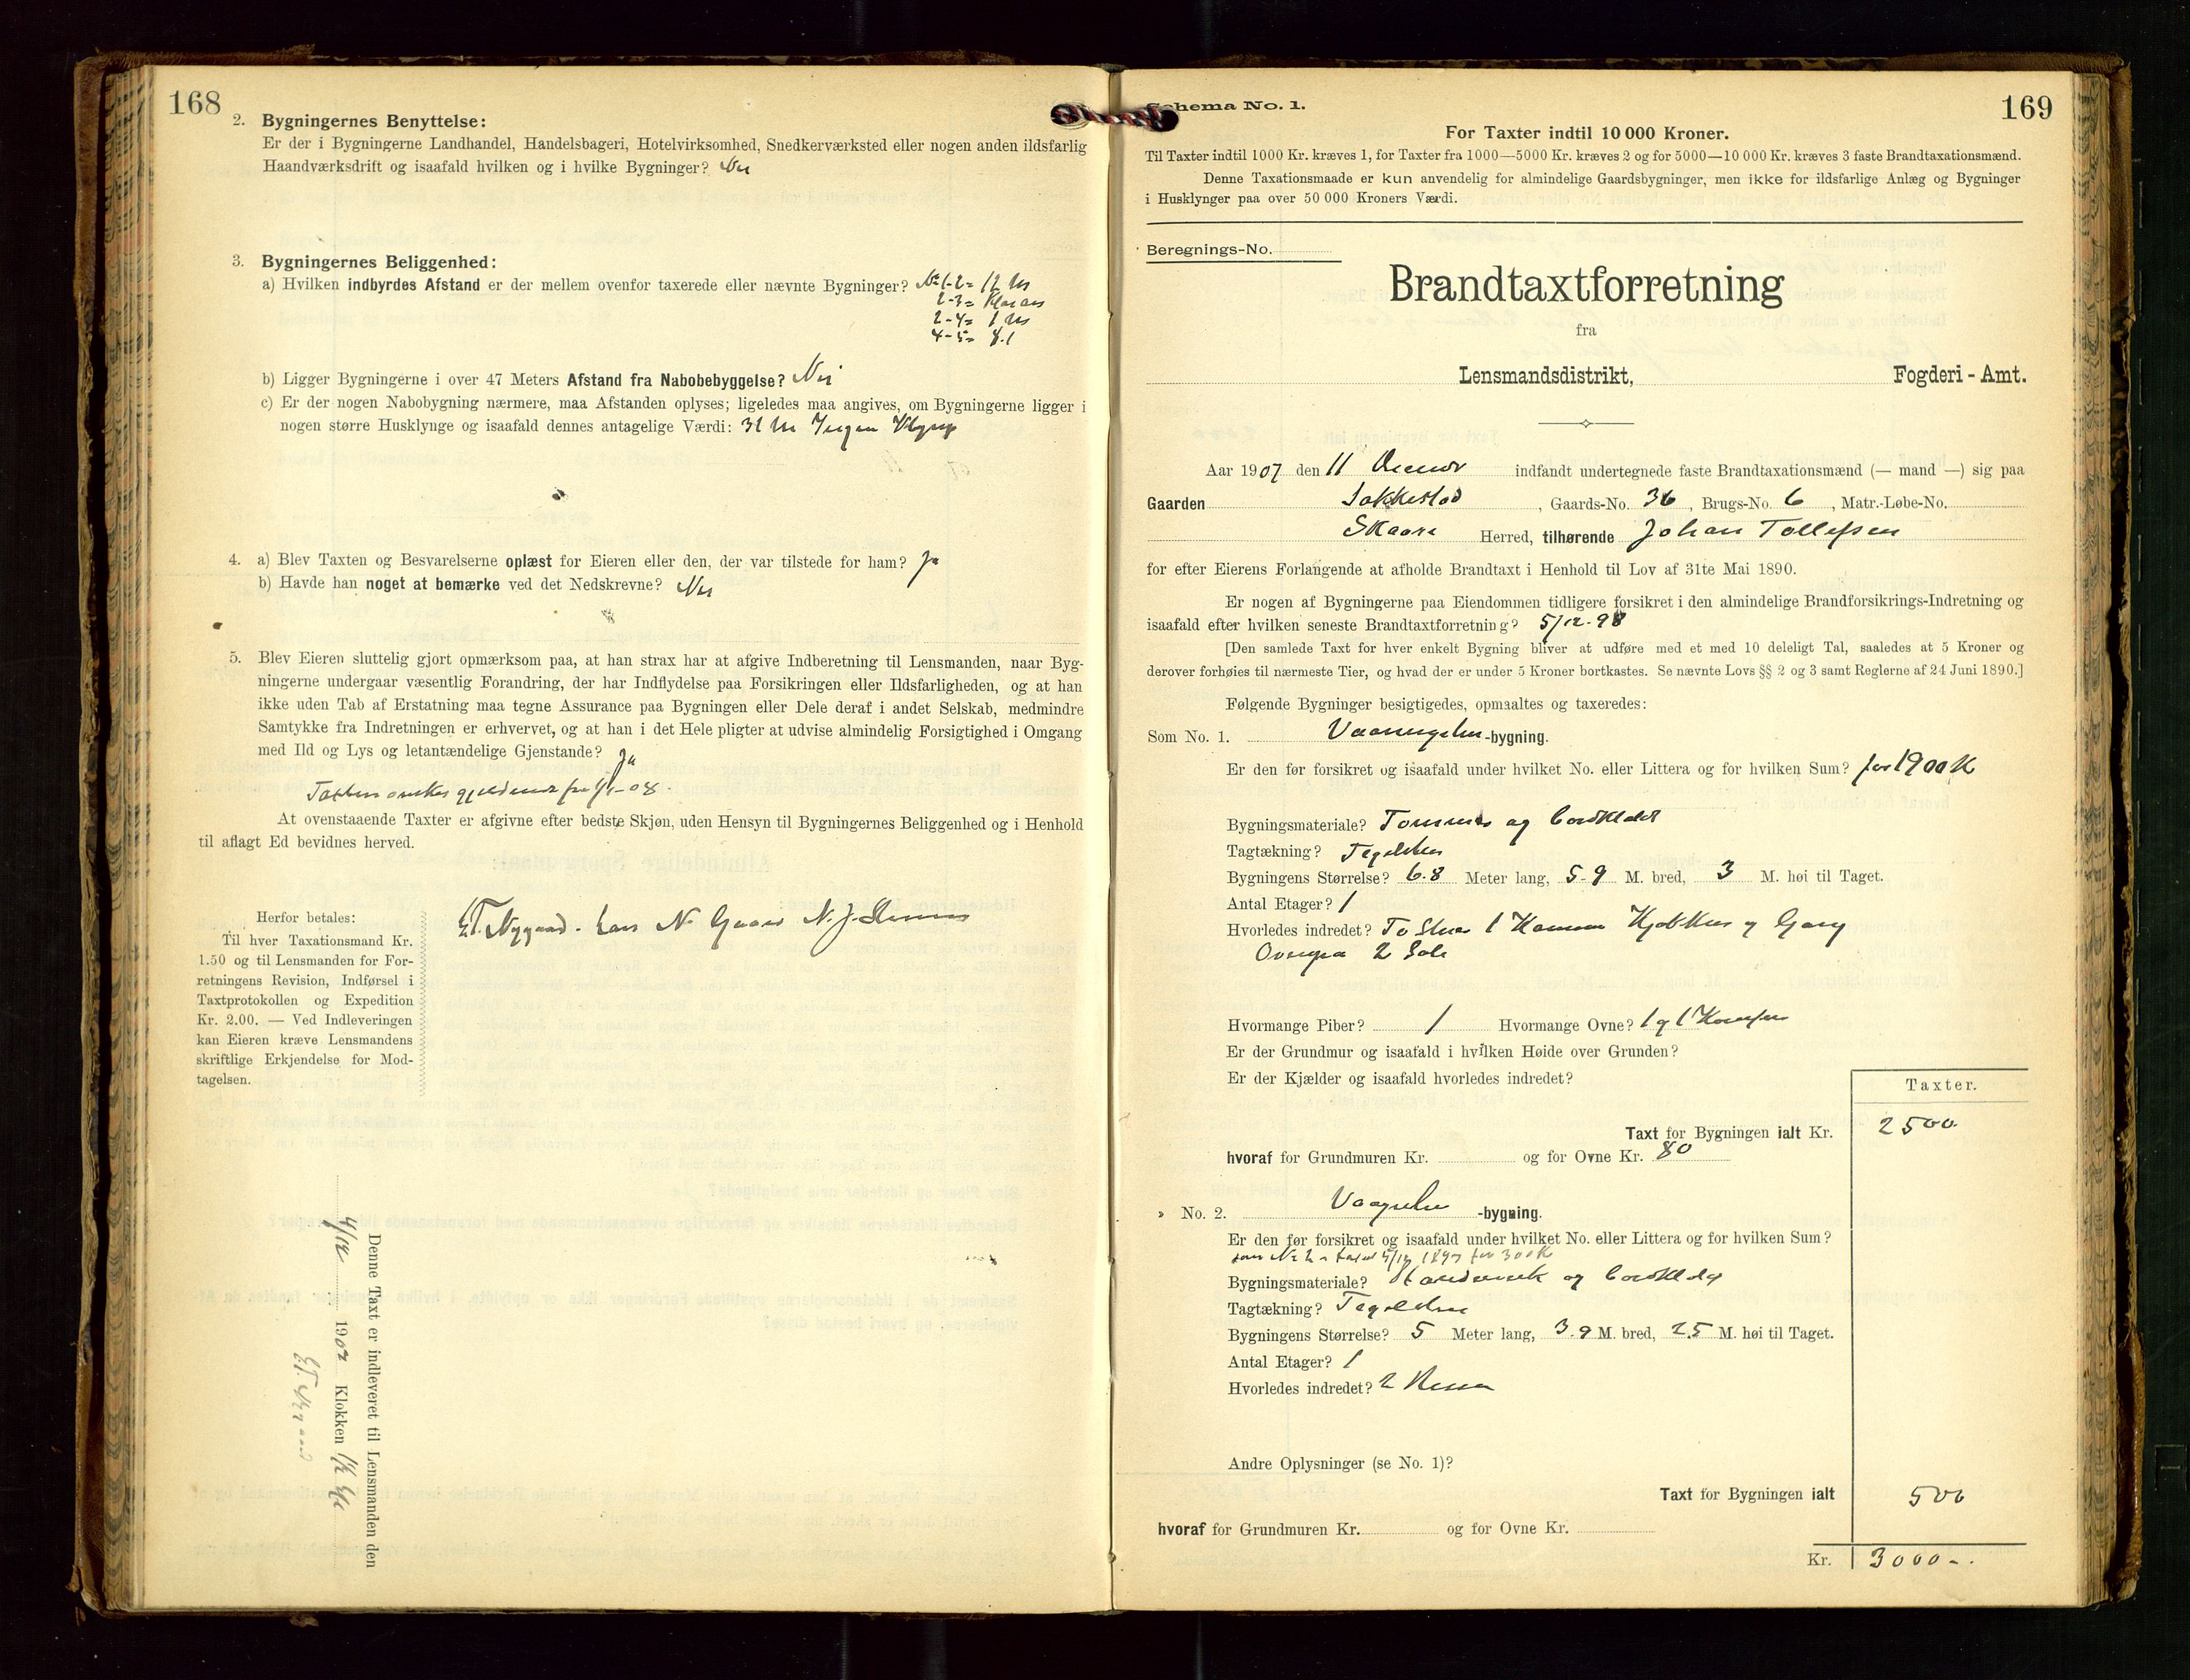 168
2. Bygningernes Benyttelse:
Er der i Bygningerne Landhandel, Handelsbageri, Hotelvirksomhed, Snedkerværksted eller nogen anden ildsfarlig
Haandværksdrift og isaafald hvilken og i hvilke Bygninger? Nei
3. Bygningernes Beliggenhed:
a) Hvilken indbyrdes Afstand er der mellem ovenfor taxerede eller nævnte Bygninger? No 1-2= 12 M
2-3=
2-4= 1 M
4-5=
b) Ligger Bygningerne i over 47 Meters Afstand fra Nabobebyggelse? Nei
c) Er der nogen Nabobygning nærmere, maa Afstanden oplyses; ligeledes maa angives, om Bygningerne ligger i
nogen større Husklynge og isaafald dennes antagelige Værdi: 31 M Ingen Klynge
4. a) Blev Taxten og Besvarelserne oplæst for Eieren eller den, der var tilstede for ham? Ja
b) Havde han noget at bemærke ved det Nedskrevne? Nei
5. Blev Eieren sluttelig gjort opmærksom paa, at han strax har at afgive Indberetning til Lensmanden, naar Byg-
ningerne undergaar væsentlig Forandring, der har Indflydelse paa Forsikringen eller Ildsfarligheden, og at han
ikke uden Tab af Erstatning maa tegne Assurance paa Bygningen eller Dele deraf i andet Selskab, medmindre
Samtykke fra Indretningen er erhvervet, og at han i det Hele pligter at udvise almindelig Forsigtighed i Omgang
med Ild og Lys og letantændelige Gjenstande? Ja
Taxten ønskes gjeldende fra 1/1-08
At ovenstaaende Taxter er afgivne efter bedste Skjøn, uden Hensyn til Bygningernes Beliggenhed og i Henhold
til aflagt Ed bevidnes herved.
Nygaard. Lars N N. J.
Herfor betales:
Til hver Taxationsmand Kr.
1.50 og til Lensmanden for For-
retningens Revision, Indførsel i
Taxtprotokollen og Expedition
Kr. 2.00. — Ved Indleveringen
kan Eieren kræve Lensmandens
skriftlige Erkjendelse for Mod-
tagelsen.
Denne Taxt er indleveret til Lensmanden den
1907 Klokken
Nygaard
Schema No. 1.
169
For Taxter indtil 10 000 Kroner.
Til Taxter indtil 1000 Kr. kræves 1, for Taxter fra 1000—5000 Kr. kræves 2 og for 5000—10 000 Kr. kræves 3 faste Brandtaxationsmænd.
Denne Taxationsmaade er kun anvendelig for almindelige Gaardsbygninger, men ikke for ildsfarlige Anlæg og Bygninger
i Husklynger paa over 50 000 Kroners Værdi.
Beregnings-No.
Brandtaxtforretning
fra
Lensmandsdistrikt, Fogderi - Amt.
Aar 1907 den 11 indfandt undertegnede faste Brandtaxationsmænd (— mand —) sig paa
Gaarden Sakkestad, Gaards-No. 36, Brugs-No. 6, Matr.-Løbe-No.
Skaare Herred, tilhørende Johan Tollefsen
for efter Eierens Forlangende at afholde Brandtaxt i Henhold til Lov af 31te Mai 1890.
Er nogen af Bygningerne paa Eiendommen tidligere forsikret i den almindelige Brandforsikrings-Indretning og
isaafald efter hvilken seneste Brandtaxtforretning? 5/12-98
[Den samlede Taxt for hver enkelt Bygning bliver at udføre med et med 10 deleligt Tal, saaledes at 5 Kroner og
derover forhøies til nærmeste Tier, og hvad der er under 5 Kroner bortkastes. Se nævnte Lovs §§ 2 og 3 samt Reglerne af 24 Juni 1890.]
Følgende Bygninger besigtigedes, opmaaltes og taxeredes:
Som No. 1. Vaaningshus-bygning.
Er den før forsikret og isaafald under hvilket No. eller Littera og for hvilken Sum? for 1900 K
Bygningsmateriale? Tømmer og Bordklædt
Tagtækning? Tegelsten
Bygningens Størrelse? 6.8 Meter lang, 5.9 M. bred, 3 M. høi til Taget.
Antal Etager? 1
Hvorledes indredet? To Stuer 1 Kammer Kjøkken og Gang
Ovenpaa 2 Sale
Hvormange Piber? 1 Hvormange Ovne? 1 og 1 Komfur
Er der Grundmur og isaafald i hvilken Høide over Grunden?
Er der Kjælder og isaafald hvorledes indredet?
Taxter.
Taxt for Bygningen ialt Kr. 2500
hvoraf for Grundmuren Kr. og for Ovne Kr. 80
» No. 2. -bygning.
Er den før forsikret og isaafald under hvilket No. eller Littera og for hvilken Sum?
som No 2 - taxt for 300 K
Bygningsmateriale? Standværk og Bordklædt
Tagtækning? Tegelsten
Bygningens Størrelse? 5 Meter lang, 3.9 M. bred, 2.5 M. høi til Taget.
Antal Etager? 1
Hvorledes indredet? 2
Andre Oplysninger (se No. 1)?
Taxt for Bygningen ialt 500
hvoraf for Grundmuren Kr. og for Ovne Kr.
Kr. 3000-.